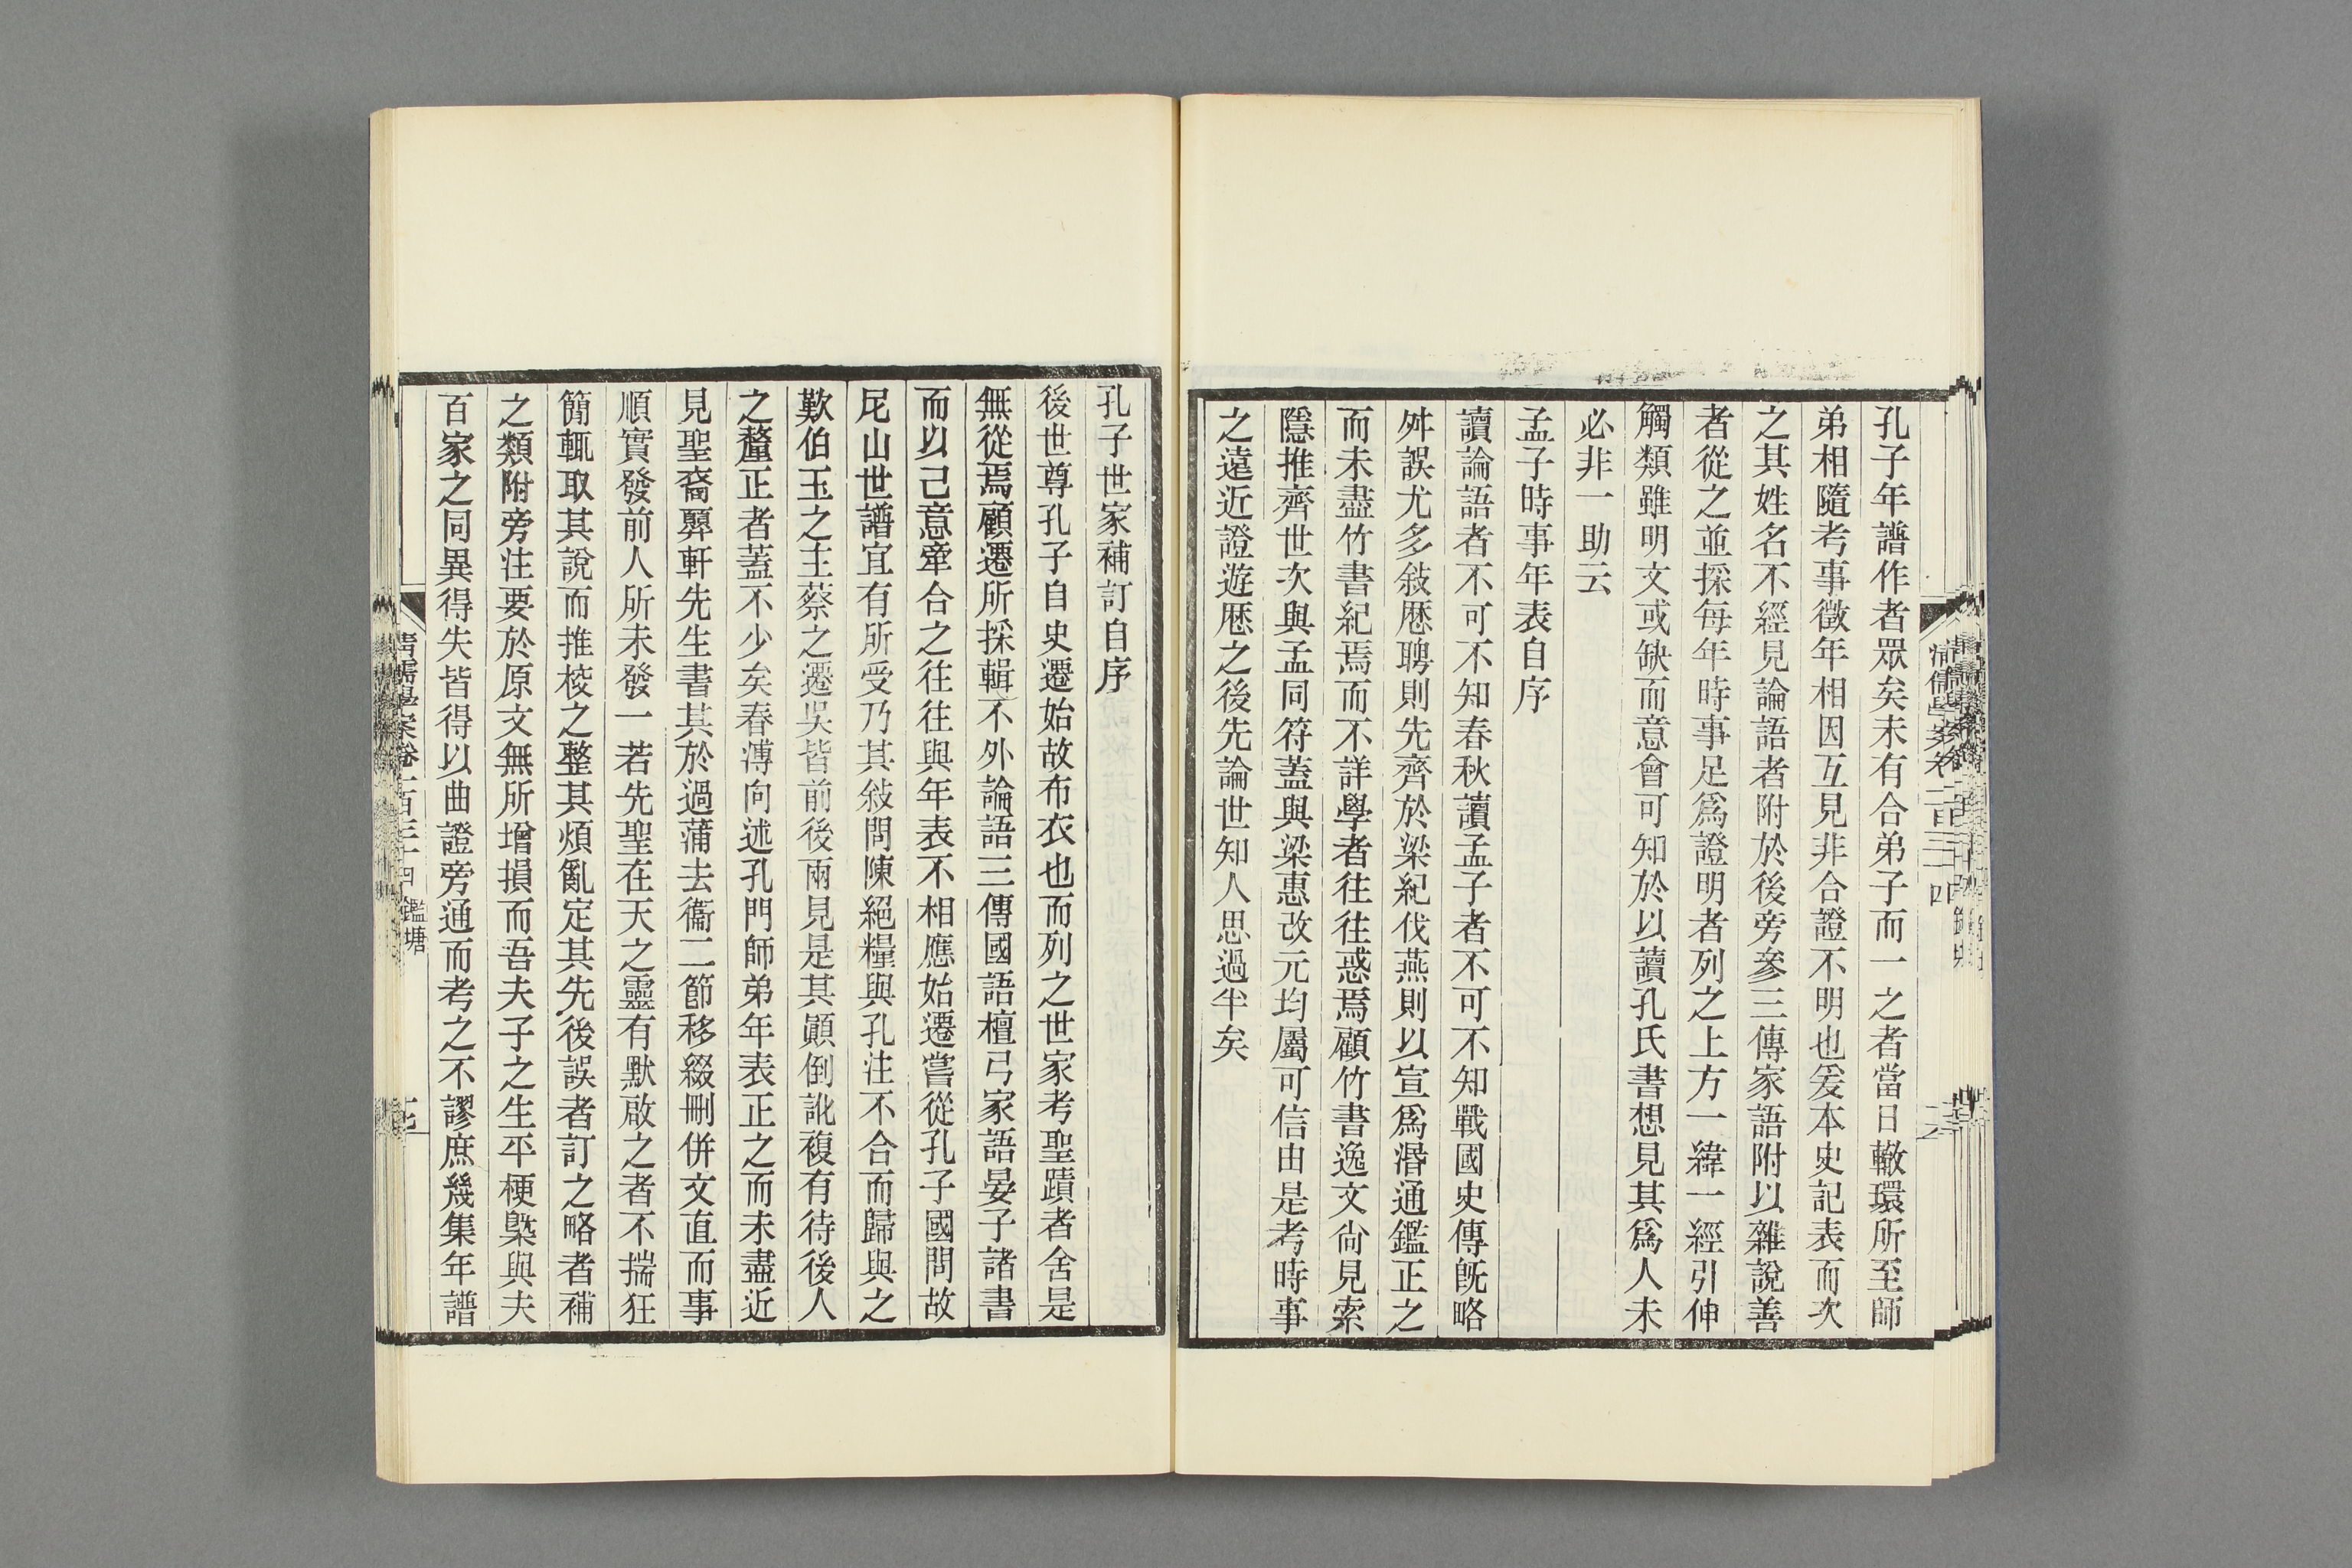 孔子年譜作者眾矣未有合弟子而一之者當日轍環所至師
弟相隨考事徵年相因互見非合證不明也爰本史記表而次
之其姓名不經見論語者附於後旁參三傳家語附以雜說善
者從之並採每年時事足爲證明者列之上方一緯一經引伸
觸類雖明文或缺而意會可知於以讀孔氏書想見其爲人未
必非一助云
孟子時事年表自序
讀論語者不可不知春秋讀孟子者不可不知戰國史傳旣略
舛誤尤多敍歷聘則先齊於梁紀伐燕則以宣爲湣通鑑正之
而未盡竹書紀焉而不詳學者往往惑焉顧竹書逸文尙見索
隱推齊世次與孟同符蓋與梁惠改元均屬可信由是考時事
之遠近證遊歷之後先論世知人思過半矣
清儒學案卷一百三十四
孔子世家補訂自序
後世尊孔子自史遷始故布衣也而列之世家考聖蹟者舍是
無從焉顧遷所採輯不外論語三傳國語檀弓家語晏子諸書
而以己意牽合之往往與年表不相應始遷嘗從孔子國問故
尼山世譜宜有所受乃其敍問陳絕糧與孔注不合而歸與之
歎伯玉之主蔡之遷吳皆前後兩見是其顚倒訛複有待後人
之釐正者蓋不少矣春溥向述孔門師弟年表正之而未盡近
見聖裔㢲軒先生書其於過蒲去衞二節移綴刪併文直而事
順實發前人所未發一若先聖在天之靈有默啟之者不揣狂
簡輒取其說而推梭之整其煩亂定其先後誤者訂之略者補
之類附旁注要於原文無所增損而吾夫子之生平梗槩與夫
百家之同異得失皆得以曲證旁通而考之不謬庶幾集年譜
清儒學案卷一百三十四 鑑塘